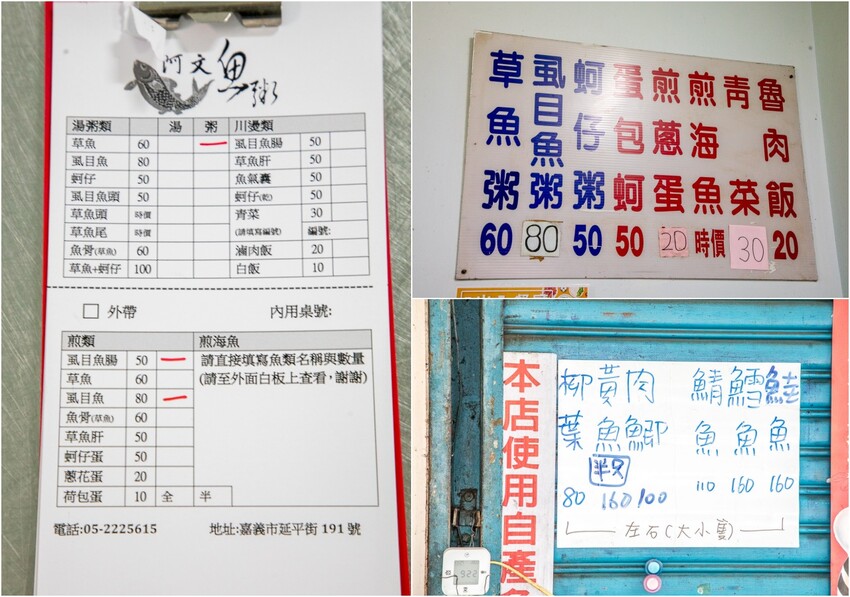 阿文魚粥
湯粥類 湯 粥 川燙類
草魚 60 虱目魚腸 50
虱目魚 80 草魚肝 50
蚵仔 50 魚氣囊 50
虱目魚頭 50 蚵仔(乾) 50
草魚頭 時價 青菜 30
草魚尾 時價 (請填寫編號) 編號:
魚骨(草魚) 60 滷肉飯 20
草魚+蚵仔 100 白飯 10
外帶 內用桌號:
煎類 煎海魚
虱目魚腸 50 請直接填寫魚類名稱與數量
草魚 60 (請至外面白板上查看,謝謝)
虱目魚 80
魚骨(草魚) 60
草魚肝 50
蚵仔蛋 50
蔥花蛋 20
荷包蛋 10 全 半
電話:05-2225615 地址:嘉義市延平街 191 號
草魚粥 60
虱目魚粥 80
蚵仔粥 50
蛋包蚵 50
煎蔥蛋 20
煎海魚 時價
青菜 30
魯肉飯 20
本店使用自產
柳葉魚 80
黃魚 半只 160
肉鯽 100
鯖魚 110
鱈魚 160
鮭魚 160
左右(大小隻)